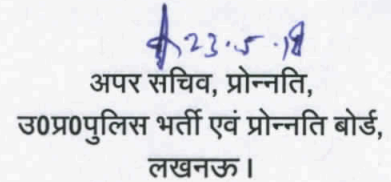 23.5.18
अपर सचिव, प्रोन्नति,
उ0प्र0पुलिस भर्ती एवं प्रोन्नति बोर्ड,
लखनऊ।